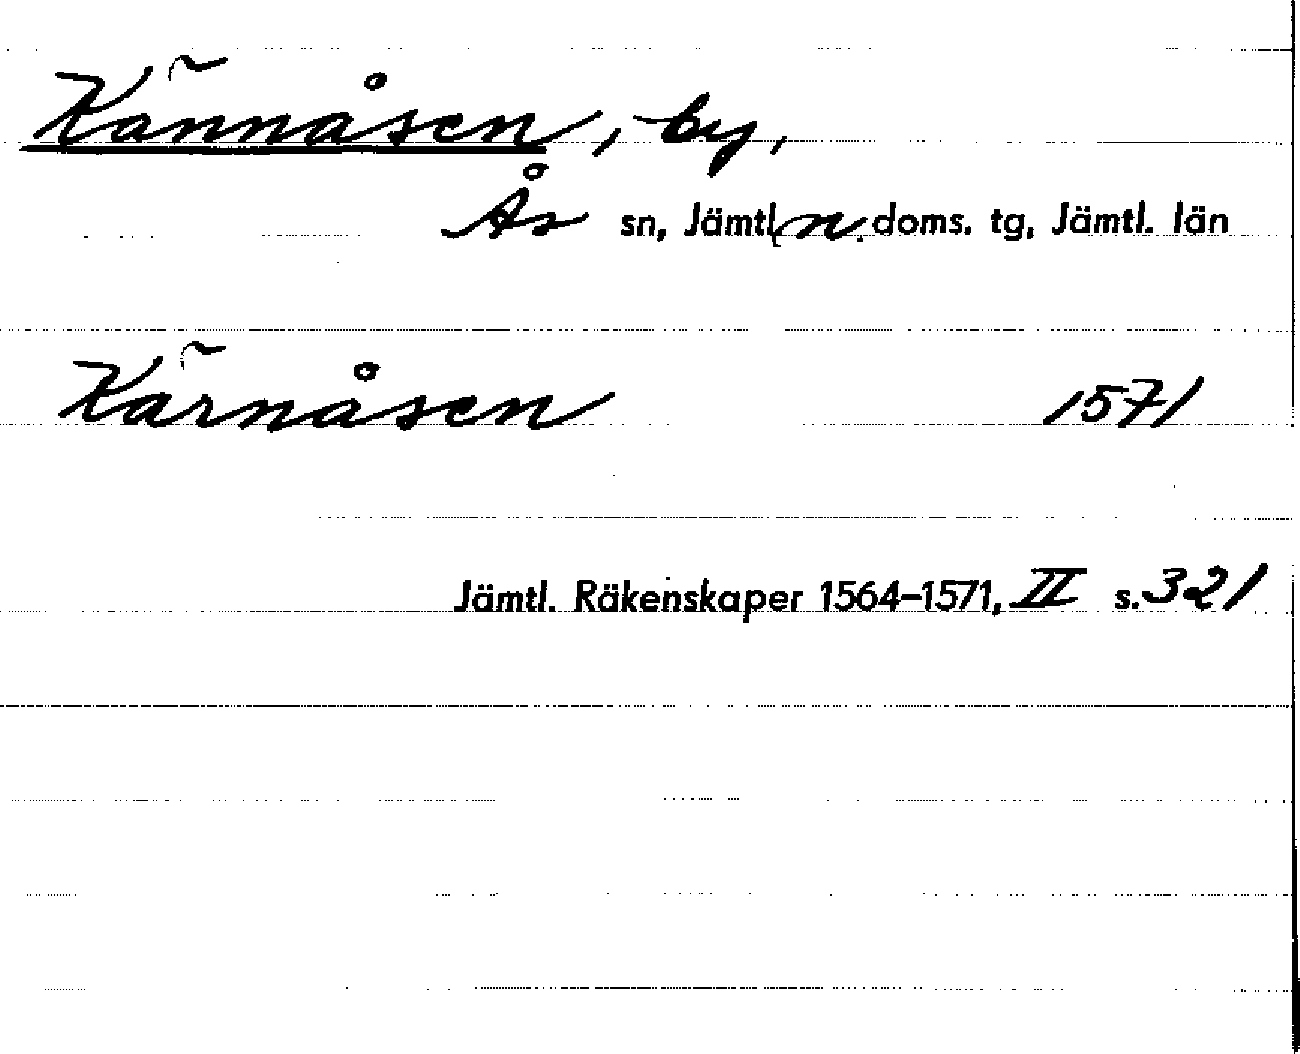 Kännåsen, by,
Ås sn, Jämtl. n. doms. tg, Jämtl. län
Kärnåsen 1571
Jämtl. Räkenskaper 1564–1571, II s. 321